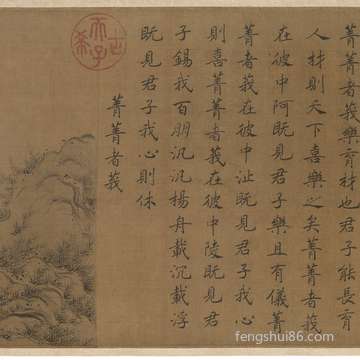 菁菁者莪樂育材也君子能長育
人材則天下喜樂之矣菁菁者莪
在彼中阿旣見君子樂且有儀菁
菁者莪在彼中沚旣見君子我心
則喜菁菁者莪在彼中陵旣見君
子錫我百朋汎汎揚舟載沉載浮
旣見君子我心則休
菁菁者莪
古希天子
fengshui86.com